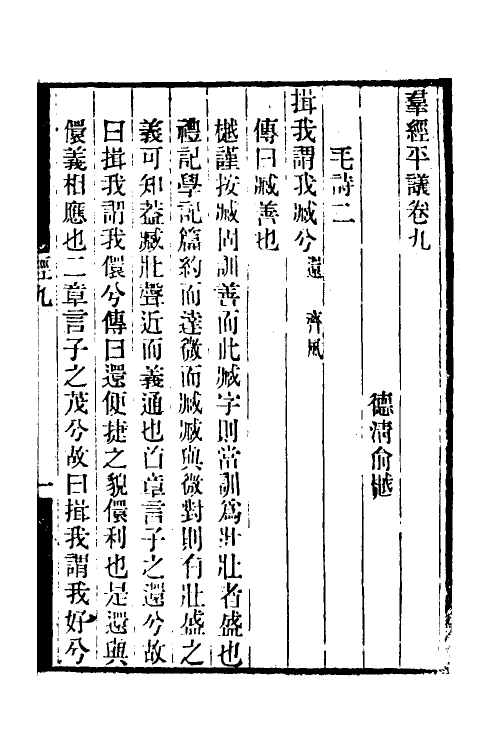 羣經平議卷九
德清俞樾
毛詩二
揖我謂我臧兮還 齊風
傳曰臧善也
樾謹按臧固訓善而此臧字則當訓爲壯壯者盛也
禮記學記篇約而達微而臧臧與微對則有壯盛之
義可知葢臧壯聲近而義通也首章言子之還兮故
曰揖我謂我儇兮傳曰還便捷之貌儇利也是還與
儇義相應也二章言子之茂兮故曰揖我謂我好兮
經九
一